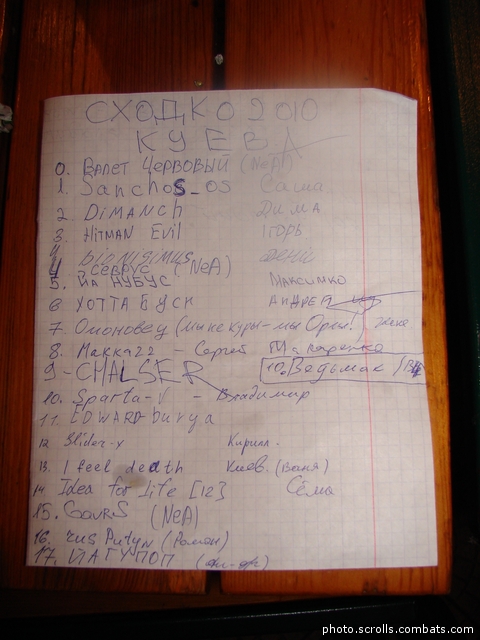 СХОДКО 2010
КУЕВА
0. ВАЛЕТ ЧЕРВОВЫЙ (NePh)
1. Sanchos_os Саша
2. DiMANCh ДИМА
3. HiTMAN Evil ІГОРЬ
4 bionisimus
СЕВРУС (NeA)
5. ЙА НУБУС МАКСИМКО
6 УОТТА БУСН АНДРЕЙ
7. Омоновец (мы не куры - мы Орлы!) Женя
8. Makka22 - Сергей Макаренко
9 - CHALSER 10. Ведьмак
10. Sparta-V - Владимир
11. EDWARD Durya
12 Slider-x Кирилл.
13. I feel death Киев. (Ваня)
14 Idea for Life [12] Сёма
15. GavrS (NeA)
16. rus Putyn (Роман)
17. ЙА ГУПОП
photo.scrolls.combats.com